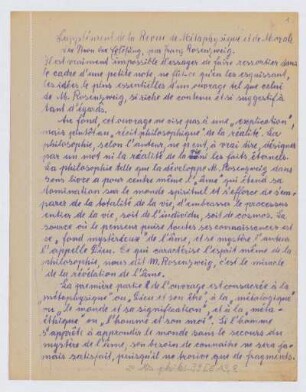 Supplément de la Revue de Métaphysique et de Morale
Der Stern der Erlösung, par Franz Rosenzweig.
Il est vraiment impossible d'essayer de faire ressortir dans
le cadre d'une petite note, ne fût-ce qu'en les esquissant,
les idées les plus essentielles d'un ouvrage tel que celui
de M. Rosenzweig, si riche de contenu et si suggestif à
tant d'égards.
Au fond, cet ouvrage ne vise pas à une "explication",
mais plutôt au "récit philosophique" de la réalité. La
philosophie, selon l'auteur, ne peut, à vrai dire, désigner
par un mot ni la réalité de la ni les faits éternels.
La philosophie telle que la développe M. Rosenzweig dans
son livre a pour centre même l'âme qui étend sa
domination sur le monde spirituel et s'efforce de s'em-
parer de la totalité de la vie, d'embrasser le processus
entier de la vie, soit de l'individu, soit de cosmos. La
source où le penseur puise toutes ses connaissances est
ce "fond mystérieux" de l'âme, et ce mystère l'auteur
l'appelle Dieu. Ce qui caractérise l'esprit même de la
philosophie, nous dit M. Rosenzweig, c'est le miracle
de la révélation de l'âme.
La première partie de l'ouvrage est consacrée à la
"métaphysique" ou "Dieu et son être", à la "métalogique"
ou "le monde et sa signification", et à la "méta-
éthique" ou "l'homme et son moi". Si l'homme
s'apprête à apprendre le monde sans le secours des
mystère de l'âme, son besoin de connaître ne sera ja-
mais satisfait, puisqu'il ne trouve que de fragments.